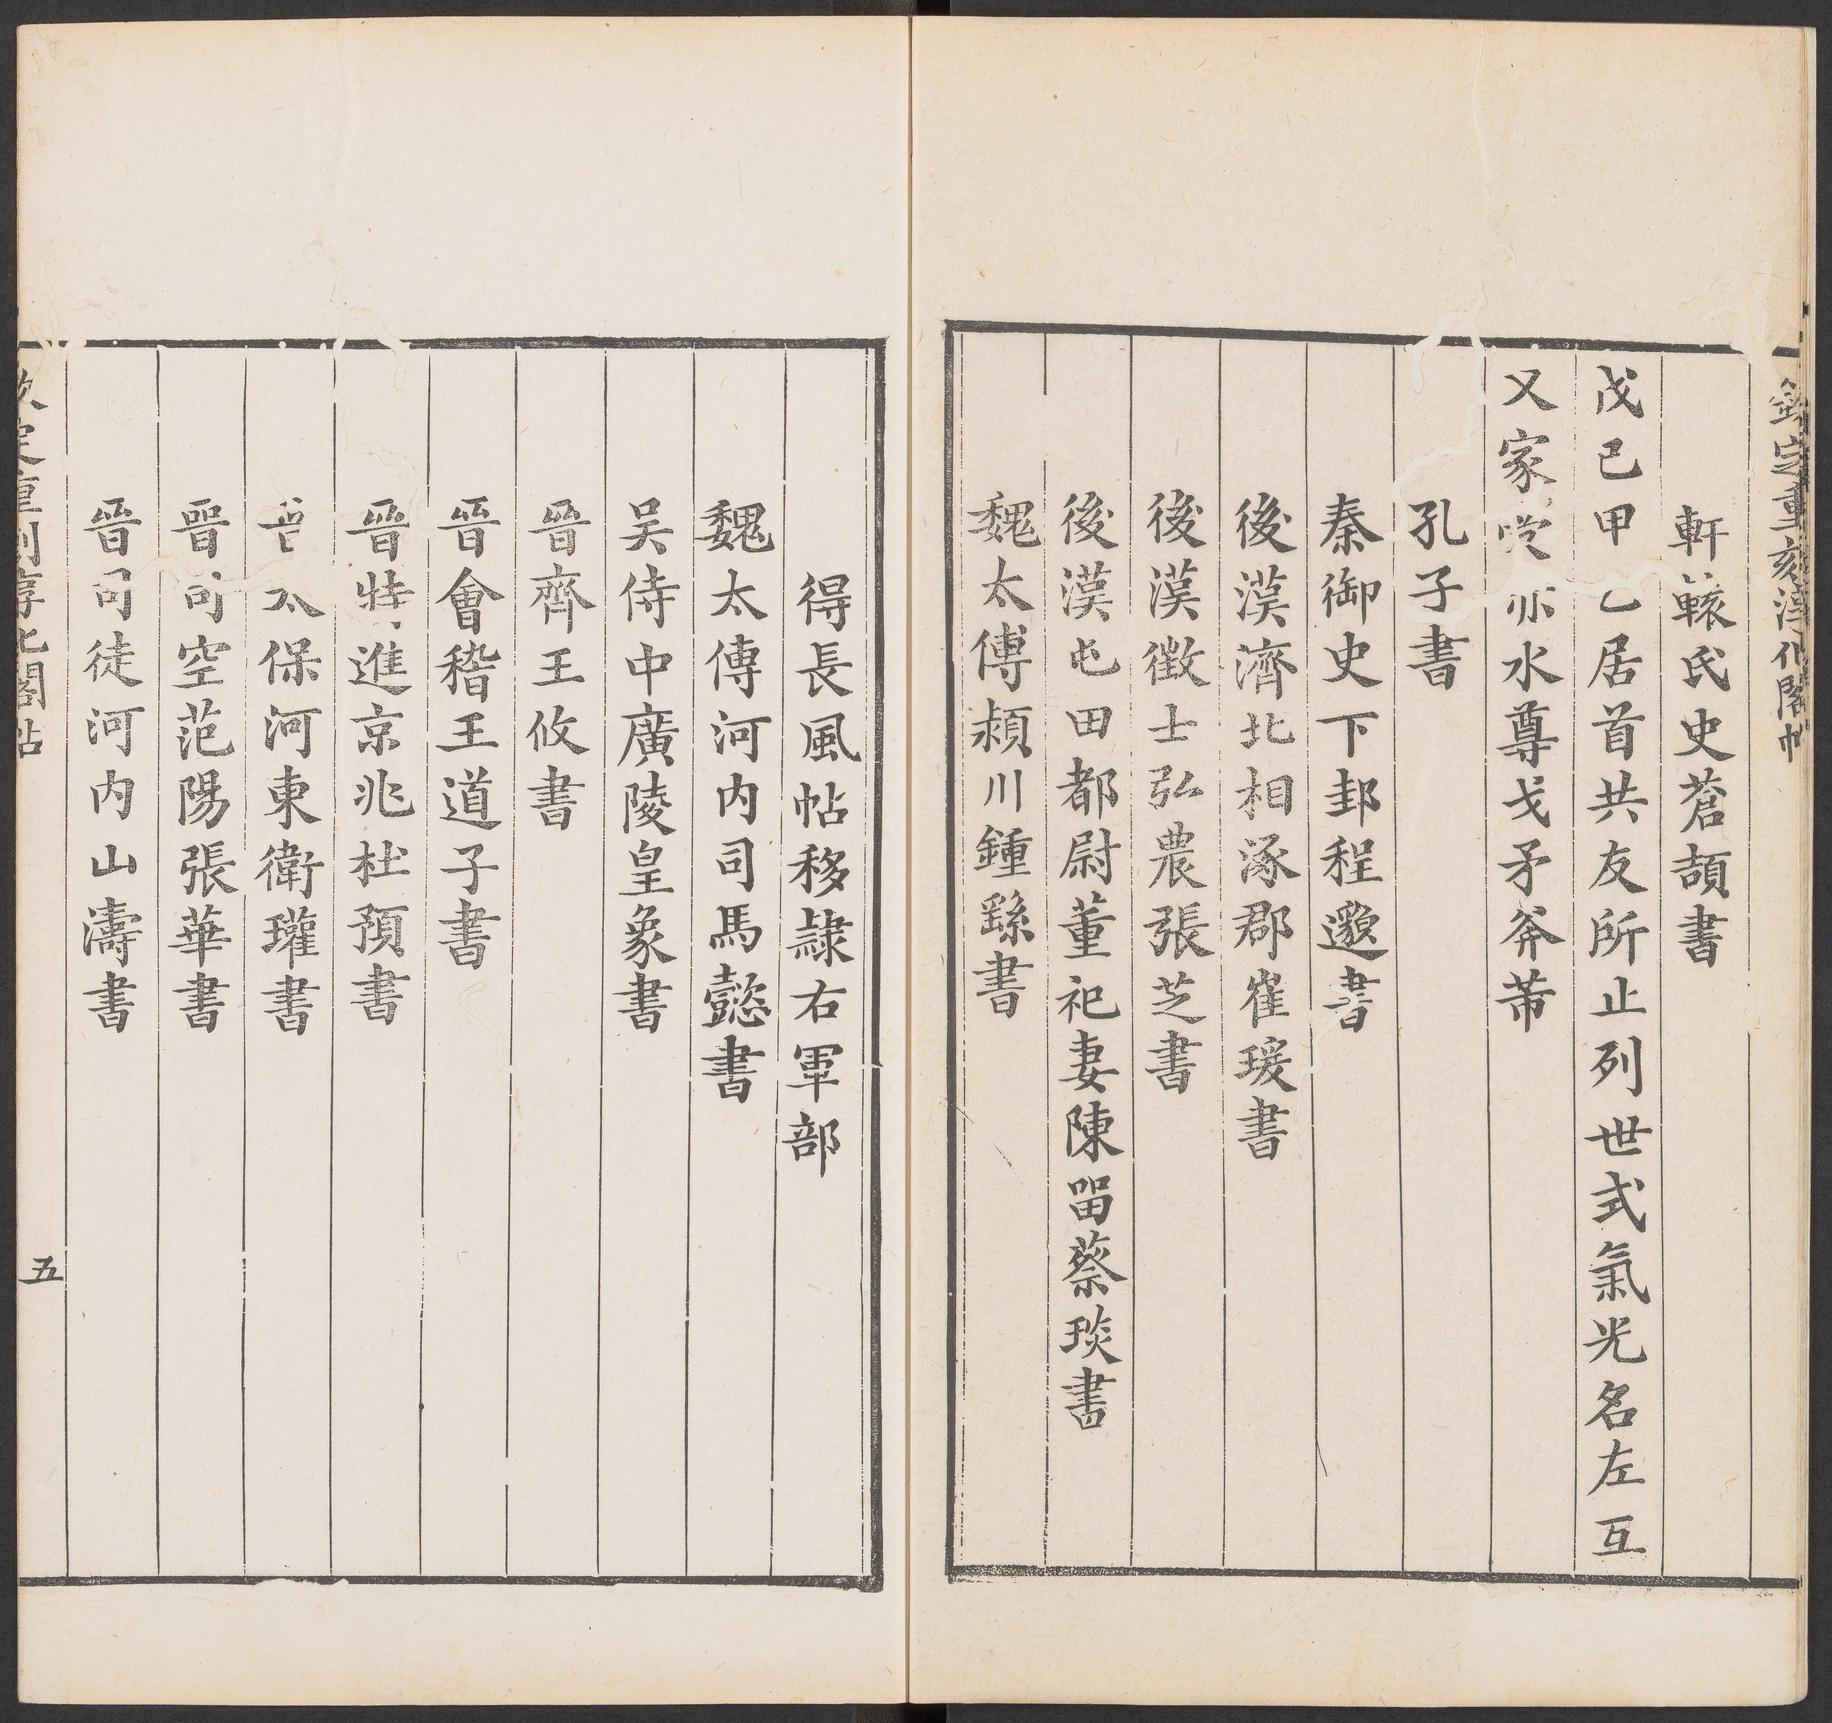 欽定重刻淳化閣帖
軒轅氏史蒼頡書
戊己甲乙居首共友所止列世式氣光名左互
又家受赤水尊戈矛斧芾
孔子書
秦御史下邽程邈書
後漢濟北相涿郡崔瑗書
後漢徵士弘農張芝書
後漢屯田都尉董祀妻陳留蔡琰書
魏太傅潁川鍾繇書
得長風帖移隷右軍部
魏太傅河内司馬懿書
吴侍中廣陵皇象書
晉齊王攸書
晉會稽王道子書
晉特進京兆杜預書
晉太保河東衛瓘書
晉司空范陽張華書
晉司徒河内山濤書
欽定重刻淳化閣帖
五